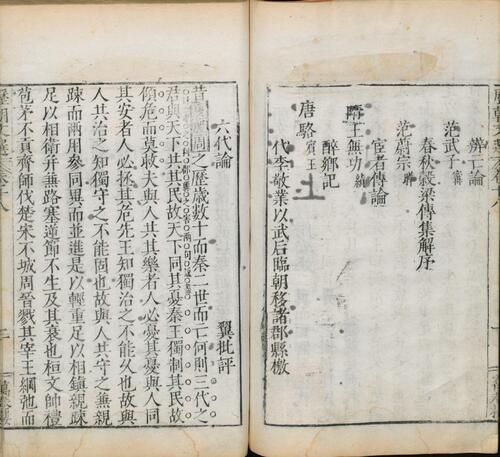 辨亡論
范武子甯
春秋穀梁傳集解序
范蔚宗曄
宦者傳論
隋王無功績
醉鄉記
唐駱賓王
代李敬業以武后臨朝移諸郡縣檄
上
六代論
翼批評
昔夏殷周之歷歲數十而秦二世而亡何則三代之
君與天下共其民故天下同其憂秦王獨制其民故
傾危而莫救夫與人共其樂者人必憂其憂與人同
其安者人必拯其危先王知獨治之不能久也故與
人共治之知獨守之不能固也故與人共守之兼親
疎而兩用參同異而並進是以輕重足以相鎮親疎
足以相衛并兼路塞逆節不生及其衰也桓文帥禮
苞茅不貢齊師伐楚宋不城周晉戮其宰王綱弛而
歷朝文選